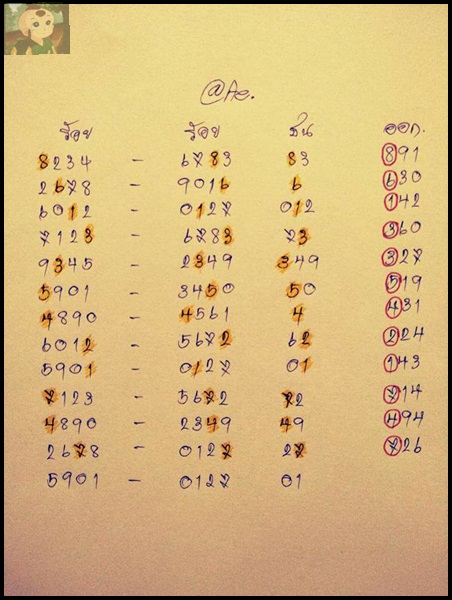 @Ae.
ร้อย ร้อย ชน ออก.
8234 - 6783 83 891
2678 - 9016 6 630
6012 - 0127 012 142
7123 - 6783 73 360
9345 - 2349 349 327
5901 - 3450 50 519
4890 - 4561 4 431
6012 - 5672 62 224
5901 - 0127 01 143
7123 - 5672 72 714
4890 - 2349 49 494
2678 - 0127 27 726
5901 - 0127 01